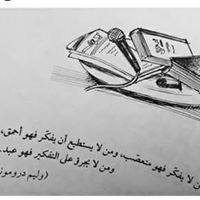 من لا يفكّر فهو متعصّب، ومن لا يستطيع أن يفكّر فهو أحمق،
ومن لا يجرؤ على التفكير فهو عبد.
(وليم درومو